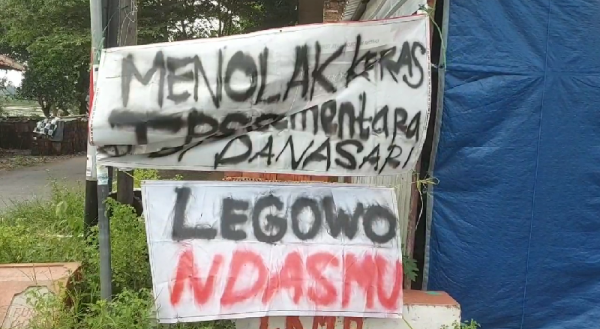 MENOLAK KERAS
TPS Sementara
DANASARI
LEGOWO
NDASMU